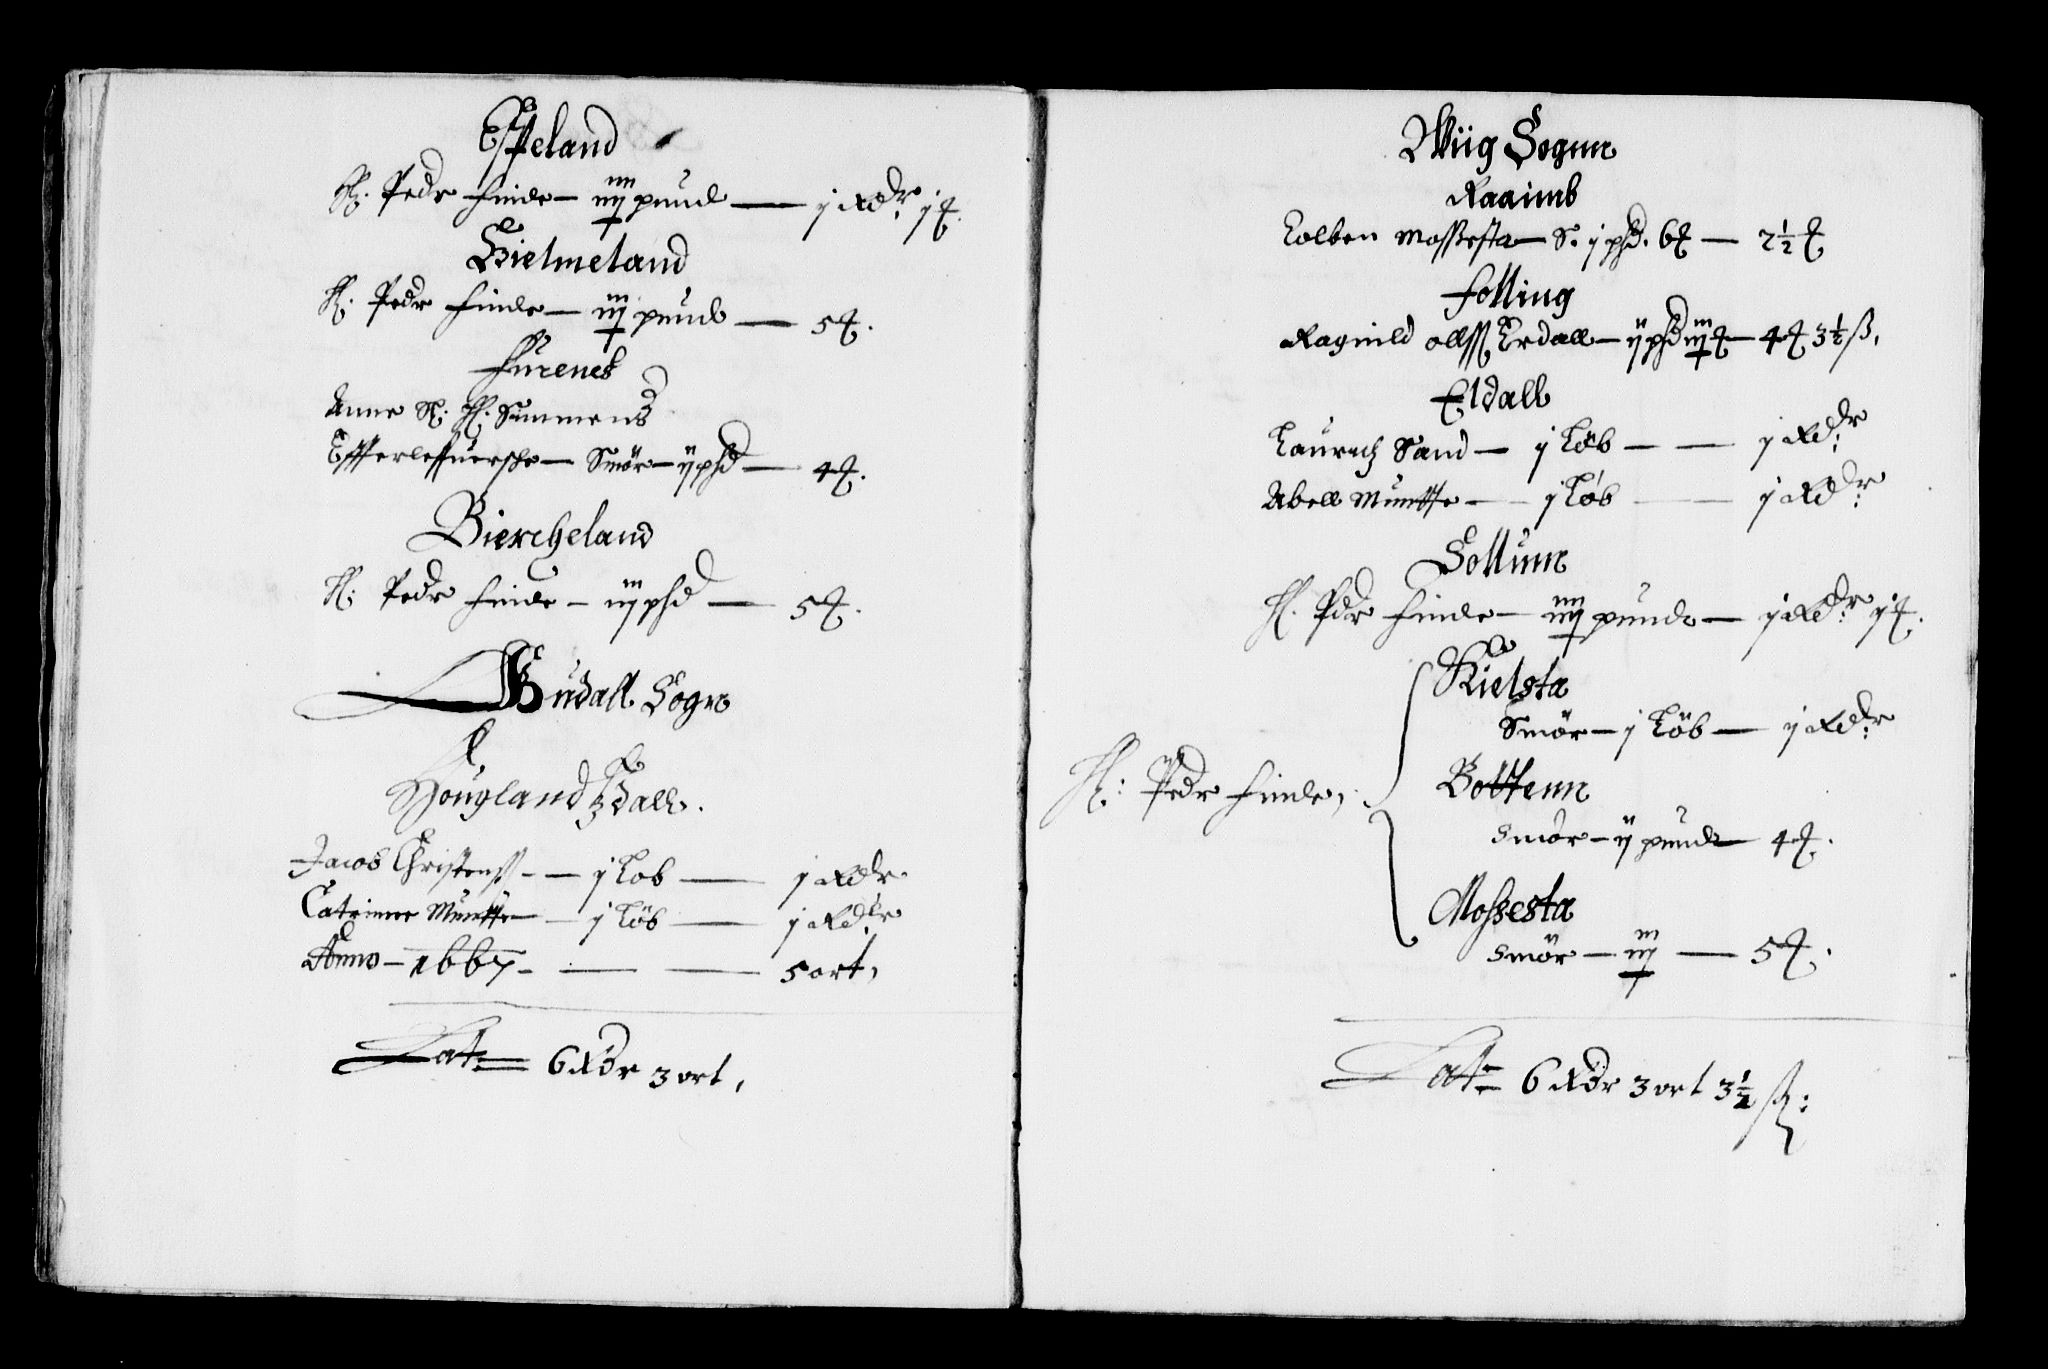 Espeland
H. Pedr Finde — iiij pund — j Rdr. j ort
Hielmeland
H. Pedr Finde — iij pund — 5 ort.
Furenes
Anne Sl: H. Simmens
Effterlefuersche — Smör — ij phd — 4 ort.
Biercheland
H: Pedr Finde — iij phd — 5 ort.
Gudall Sogn
Hougland I Dall.
Jacob Christenß — j Löb — j Rdr
Catrinne Muntte — j Löb — j Rdlr
Anno — 1667 — 5 ort,
Lat= 6 Rdr 3 ort,
Wiig Sognn
Raaimb
Colben Moßesta — S. j phd. 6 — 2½ ort
Folling
Ragnild ollß Erdall — ij phd iij — 4 ort 3½ ß,
Eldall
Lauritz Sand — j Löb — j Rdr
Abell Muntte — j Löb — j Rdr
Sottunn
H. Pdr Finde — iiij pund — j Rdr j ort.
Kielsta
Smör — j Löb — j Rdr
H: Pedr Finde,
Bottenn
Smör — ij pund — 4 ort.
Moßesta
Smör — iij — 5 ort.
Lat= 6 Rdr 3 ort 3½ ß: